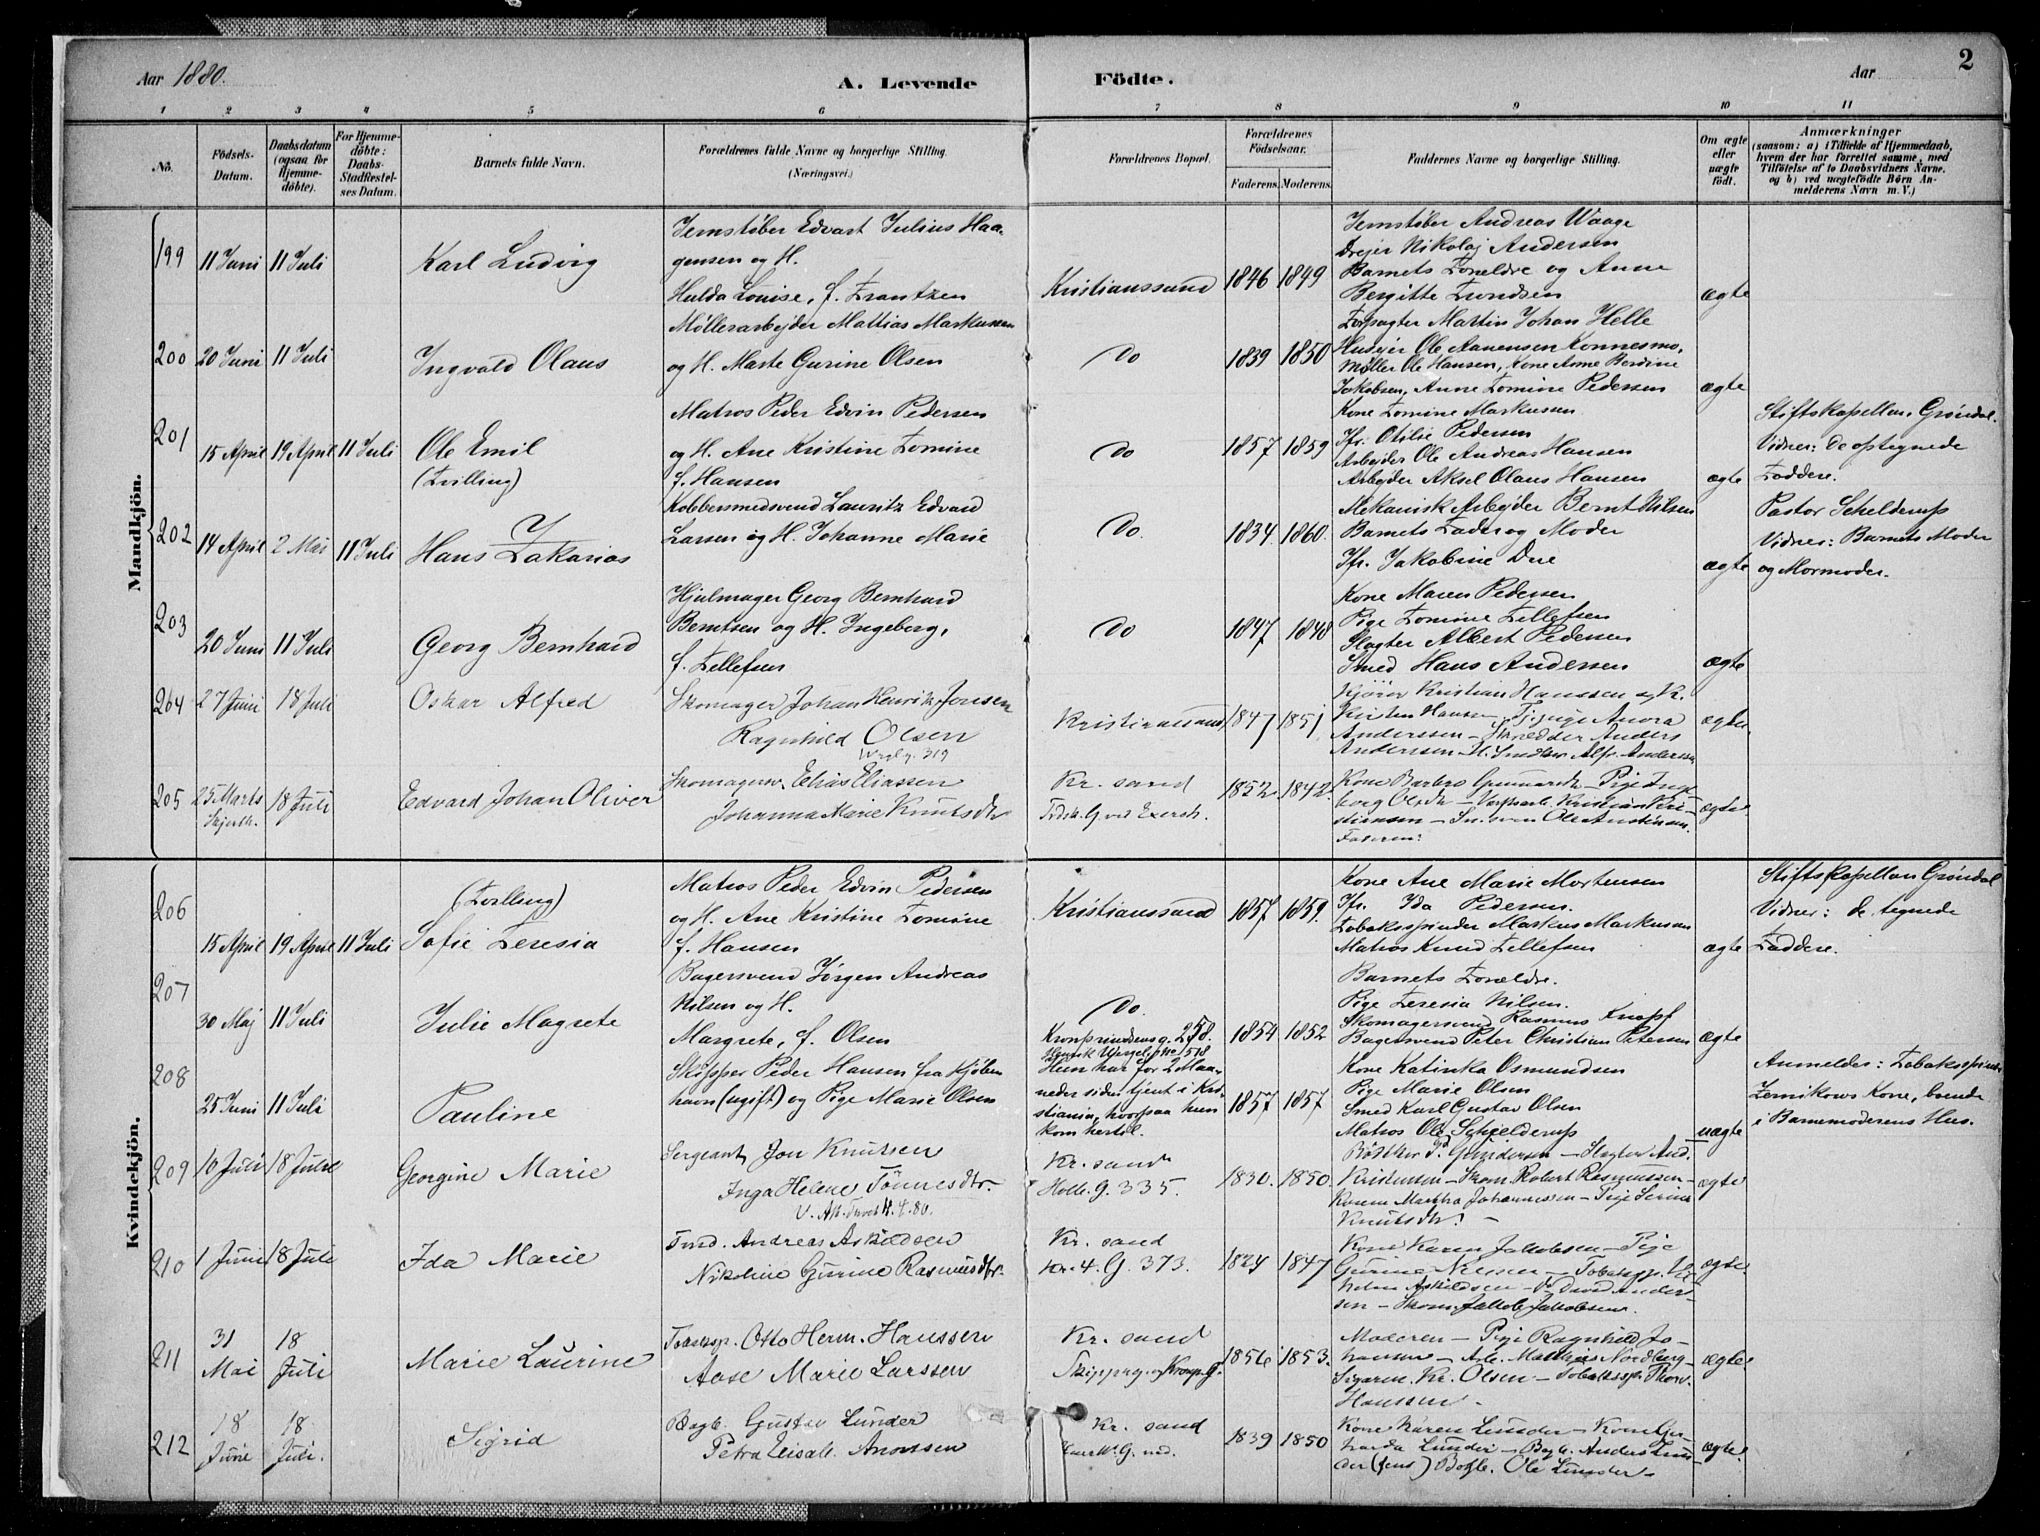 Aar 1880.
A. Levende
Födte.
Aar
2
1 2 3 4 5 6 7 8 9 10 11
Nö.
Födsels-Datum.
Daabsdatum (ogsaa for Hjemme-döbte).
For Hjemme-döbte: Daabs-Stadfæstel-ses Datum.
Barnets fulde Navn.
Forældrenes fulde Navne og borgerlige Stilling.
(Næringsvei.)
Forældrenes Bopæl.
Forældrenes Födselsaar.
Faderens. Moderens.
Faddernes Navne og borgerlige Stilling.
Om ægte eller uægte födt.
Anmærkninger
(saasom: a) i Tilfælde af Hjemmedaab,
hvem der har forrettet samme, med
Tilföielse af to Daabsvidners Navne.
og b) ved uægtefödte Börn An-
melderens Navn m. V.)
Mandkjön.
199 11 Juni 11 Juli
Karl Ludvig
Jernstøber Edvart Julius Haa-
gensen og H.
Hulda Louise, f. Frantzen
Kristianssand 1846 1849
Jernstøber Andreas Waage
Drejer Nikolaj Andersen
Barnets Forældre og Anne
Bergitte
ægte
200 20 Juni 11 Juli
Ingvald Olaus
Møllerarbejder Mattias Markussen
og H. Marte Gurine Olsen
Do 1839 1850
Forpagter Martin Johan Helle
Husejer Ole Aanensen Konnesmo,
Møller Ole Hansen, Kone Anne Berdine
Jakobsen, Anne Tomine Pedersen
ægte
201 15 April 19 April 11 Juli
Ole Emil
(Tvilling)
Matros Peder Edvin Pedersen
og H. Ane Kristine Tomine
f. Hansen
Do 1857 1859
Kone Tomine Markussen
Jfr. Otilie Pedersen
Arbejder Ole Andreas Hansen
Arbejder Aksel Olaus Hansen
ægte
Stiftskapellan Grøndal.
Vidner: de optegnede
Faddere.
202 14 April 2 Mai 11 Juli
Hans Zakarias
Kobbersmedsvend Lauritz Edvard
Larsen og H. Johanne Marie
Do. 1834 1860
Mekanisk Arbejder Bernt Nilsen
Barnets Fader og Moder
Jfr. Jakobine Due
ægte
Pastor Schelderup
Vidner: Barnets Moder
og Mormoder.
203 20 Juni 11 Juli
Georg Bernhard
Hjulmager Georg Bernhard
Berntsen og H. Ingeborg,
f. Tellefsen
Do 1847 1848
Kone Maren Pedersen
Pige Tomine Tellefsen
Slagter Albert Pedersen
Smed Hans Andersen
ægte
204 27 Juni 18 Juli
Oskar Alfred
Skomager Johan Henrik Jensen
Ragnhild Olsen
319
Kristianssand 1847 1851
Kristian Hanssen og K.
Kirsten Hansen Anora
Anderssen - Skredder Anders
Anderssen Alfr. Anderssen
ægte
205 25 Marts 18 Juli
Edvard Johan Oliver
Skomagersv. Elias Eliassen
Johanna Marie Knutsdtr
Kr. sand
1852. 1842.
Kone Barbro Gunnarsdtr - Pige Inge-
borg Olsdtr - Kristian Kri-
stiansen - Ole Austensen.
Faderen.
ægte
Kvindekjön.
206 15 April 19 April 11 Juli
(Tvilling)
Sofie Teresia
Matros Peder Edvin Pedersen
og H. Ane Kristine Tomine
f. Hansen
Kristianssand 1857 1859.
Kone Ane Marie Mortensen
Jfr. Ida Pedersen.
Tobaksspinder Markus Markussen
Matros Knud Tellefsen
ægte
Stiftskapellan Grøndal
Vidner: de tegnede
Faddere.
207 30 Maj 11 Juli
Julie Magrete
Bagersvend Jørgen Andreas
Nilsen og H.
Margrete, f. Olsen
Do.
Kronprindsensg. 258.
1854 1852
Barnets Forældre.
Pige Teresia Nilsen.
Skomagersvend Rasmus Knopf
Bagersvend Peter Christian Petersen
ægte
208 25 Juni 11 Juli
Pauline
Skipper Peder Hansen fra Kjøben
havn (ugift) og Pige Marie Olsen
Hun har for 2 Maa-
neder siden tjent i Kri-
stiania, hvorpaa hun
kom hertil.
1857 1857
Kone Katinka Osmundsen
Pige Marie Olsen
Smed Karl Gustav Olsen
Matros Ole Schjelderup
uægte
Anmelder: Tobaksspinder
Kone, boende
i Barnemoderens Hus.
209 10 Juli 18 Juli
Georgine Marie
Sergeant Jon Knutsen
Inga Helene Tönnesdtr.
Kr. sand
Holb. G. 335.
1830. 1850.
Bödtker P. Gundersen - Slagter And.
Kristensen - Skom. Robert Rasmussen -
Konen Martha Johannessen - Pige Serine
Knutsdtr. -
ægte
210 1 Juni 18 Juli
Ida Marie
Tind. Andreas Askildsen
Nikoline Gurine Rasmusdtr.
Kr. sand
4. G. 373.
1824 1847
Kone Karen Jakobsen - Pige
Gurine Nilssen - Tobakssp. Vil
helm Askildsen - Do David Anders-
sen - Skom. Jakob Jakobsen.
ægte.
211 31 Mai 18 Juli
Marie Laurine
Tobakssp. Otto Herm. Hanssen
Aase Marie Larssen
Kr. sand
Skipperg. Kronpr. G.
1856 1853.
Moderen - Pige Ragnhild Jo-
hansen - Arb. Mathias Nordberg -
Sigarm. Kr. Olsen - Tobakssp. Thorv.
Hanssen -
ægte.
212 18 Juni 18 Juli.
Sigrid
Bogb. Gustav Lunder
Petra Elisab. Anonsen
Kr. sand
1839 1850
Kone Karen Lunder - Kone Ger-
harda Lunder - Bogb. Anders Lun-
der (sen) Bogb. Ole Lunder -
ægte.